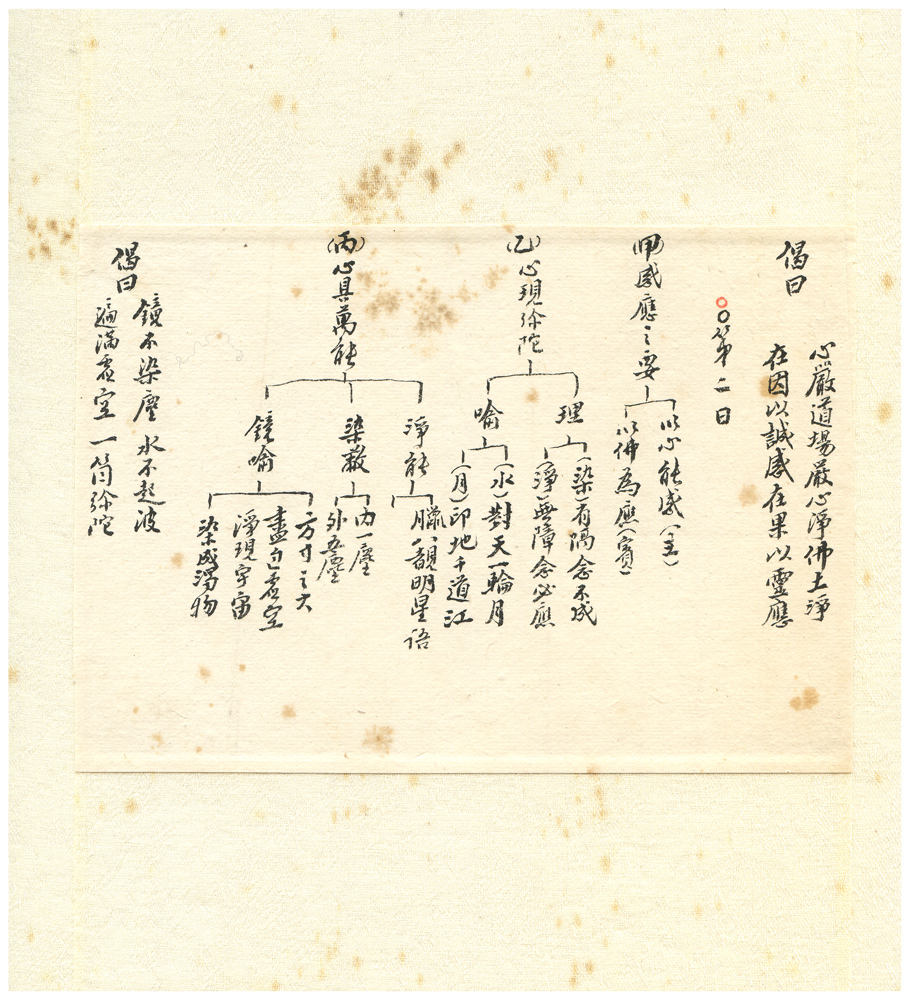 偈曰
心嚴道場嚴心淨佛土淨
在因以誠感在果以靈應
○○第二日
(甲)感應之要
以心能感(主)
以佛為應(賓)
(乙)心現弥陀
理
(染)有隔念不成
(淨)無障念必應
喻
(水)對天一輪月
(月)印地千道江
(丙)心具萬能
淨能
臘八覩明星语
染蔽
内一塵
外五塵
鏡喻
方寸之大
盡包虛空
淨現宇宙
染成濁物
偈曰
鏡不染塵水不起波
遍滿虛空一箇弥陀